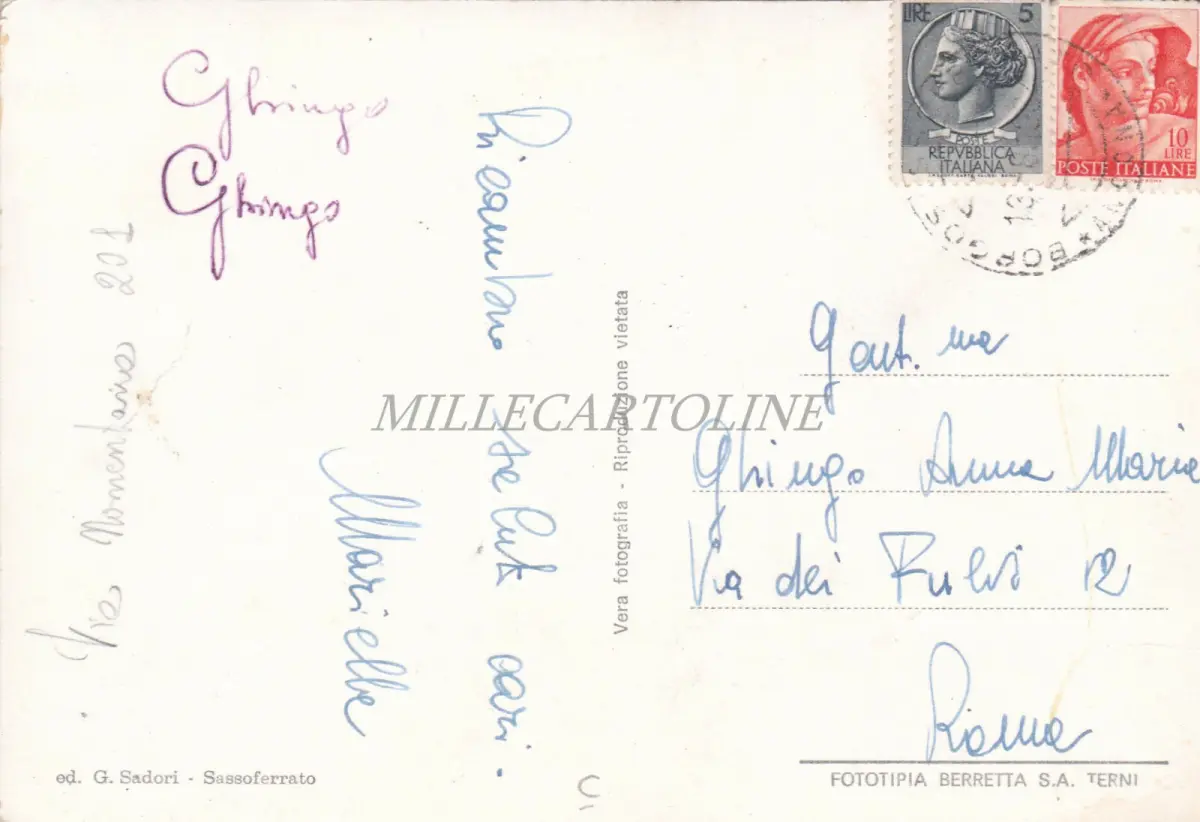 Ghingo
Ghingo
Via Nomentana 201
Ricambio saluti cari.
Mariella
ed. G. Sadori - Sassoferrato
Vera fotografia - Riproduzione vietata
MILLECARTOLINE
LIRE 5
POSTE
REPVBBLICA
ITALIANA
10
LIRE
POSTE ITALIANE
Gent.ma
Ghingo Anna Maria
Via dei Fulvi 12
Roma
FOTOTIPIA BERRETTA S.A. TERNI